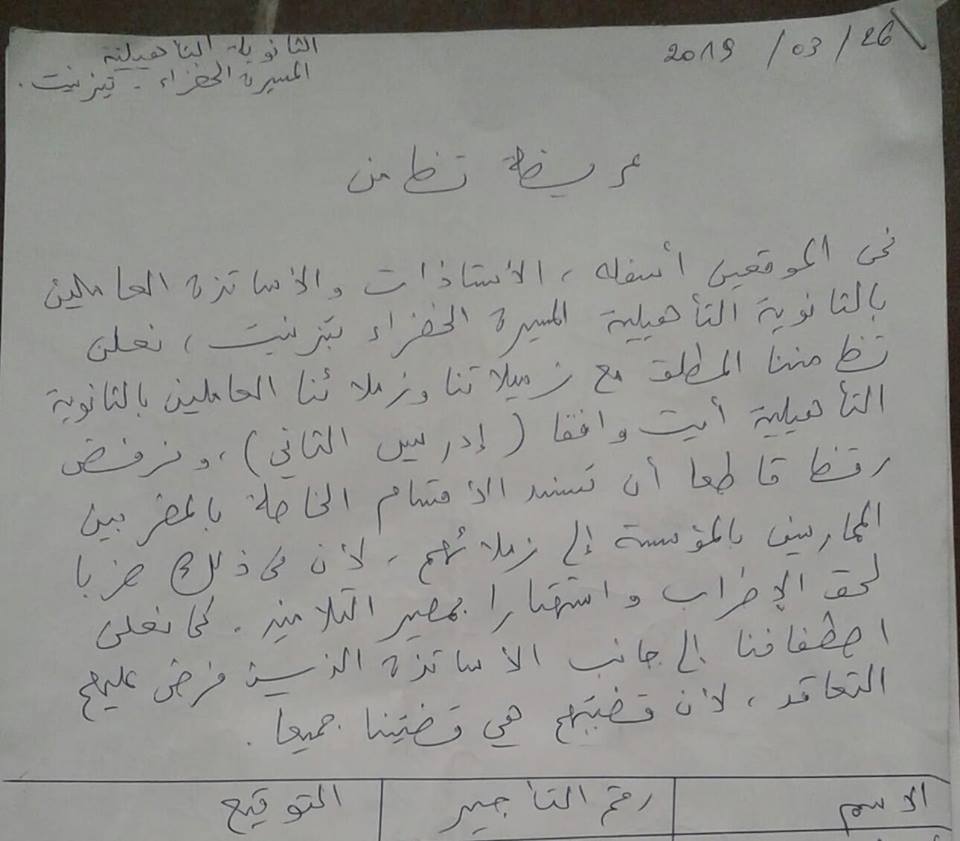 الثانوية التأهيلية
المسيرة الخضراء - تيزنيت.
26 / 03 / 2019
عريضة تظامن
نحن الموقعين أسفله، الأستاذات والأساتذة العاملين
بالثانوية التأهيلية المسيرة الخضراء بتزنيت، نعلن
تظامننا المطلق مع زميلاتنا وزملائنا العاملين بالثانوية
التأهيلية أيت وافقا (إدريس الثاني)، ونرفض
رفظا قاطعا أن تسند الأقسام الخاصة بالمضربين
الممارسين بالمؤسسة إلى زملائهم، لأن في ذلك ضربا
لحق الإضراب واستهتارا بمصير التلاميذ. كما نعلن
اصطفافنا إلى جانب الأساتذة الذين فرض عليهم
التعاقد، لأن قضيتهم هي قضيتنا جميعا.
الاسم رقم التأجير التوقيع